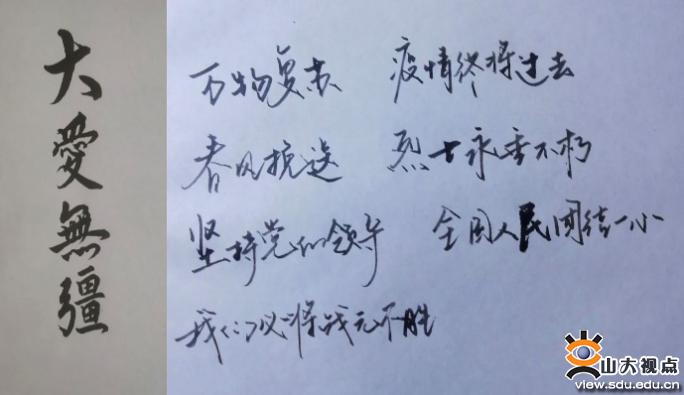 大愛無疆
万物复苏 疫情终将过去
春风挽送 烈士永垂不朽
坚持党的领导 全国人民团结一心
我们必将战无不胜
山大视点
view.sdu.edu.cn